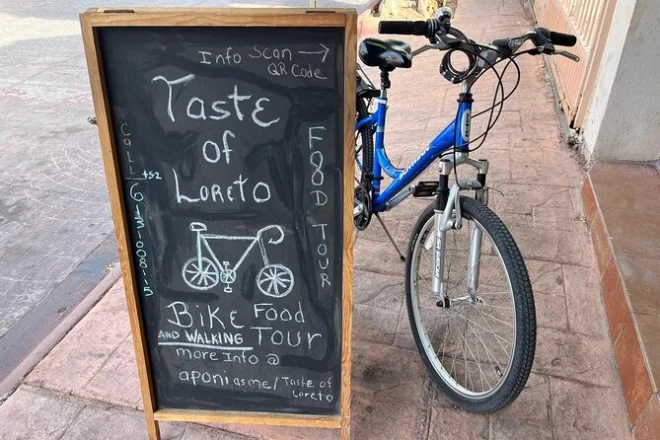 Info Scan →
QR Code
Taste
of
Loreto
FOOD TOUR
Call +52 6131008115
Bike Food
AND WALKING TOUR
more Info @
aponiasme/Taste of
Loreto